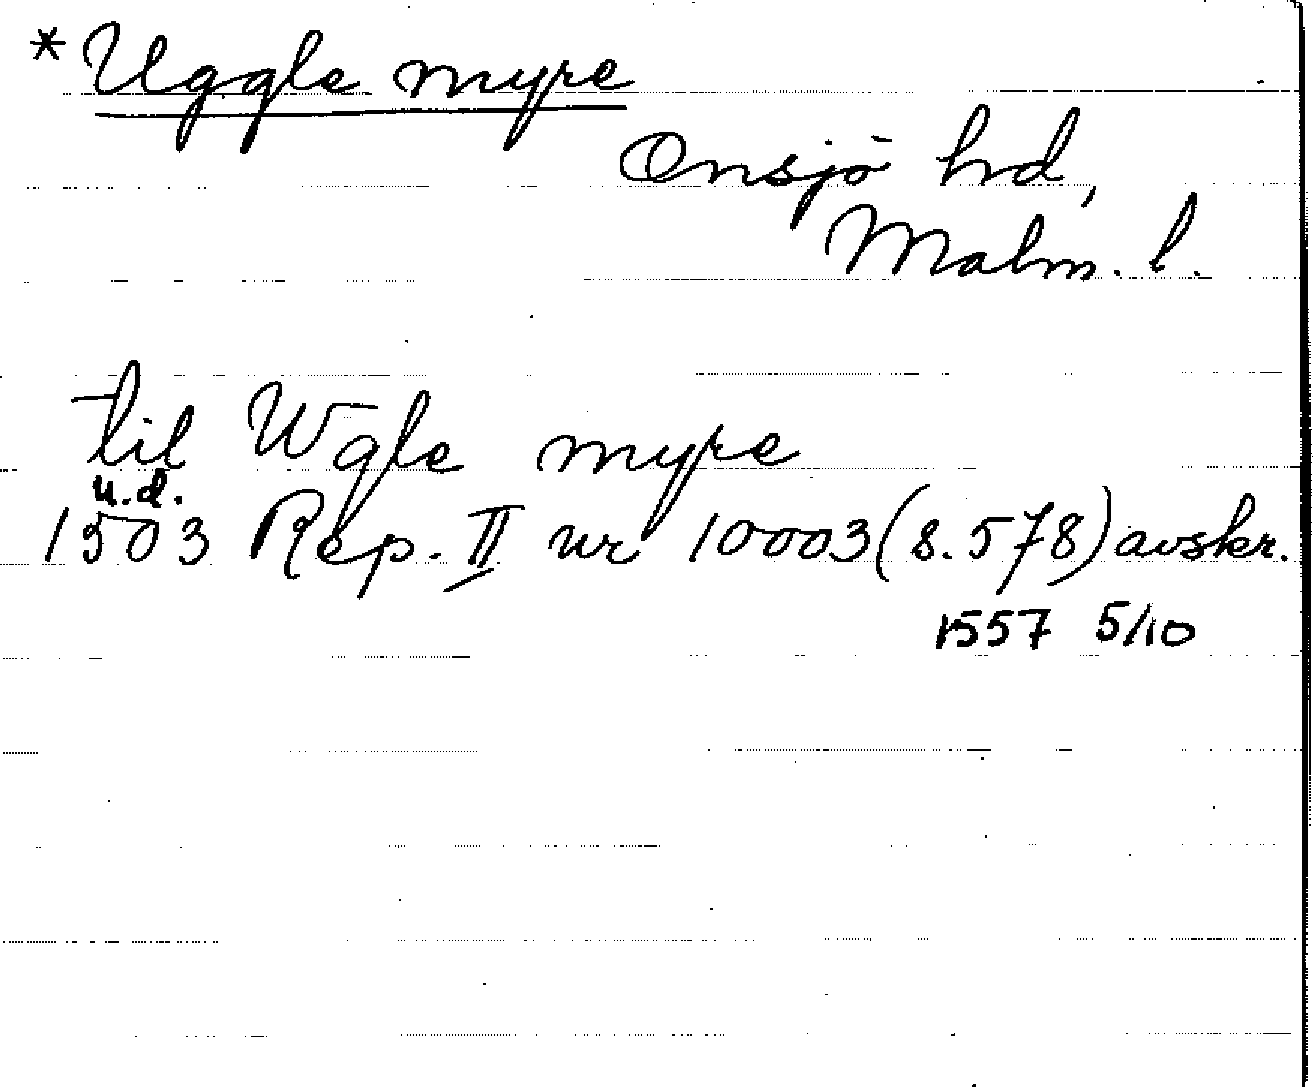 *Uggle myre
Onsjö hd,
Malm. l.
til Wgle myre
u.d.
1503 Rep. II nr 10003 (s. 578) avskr.
1557 5/10